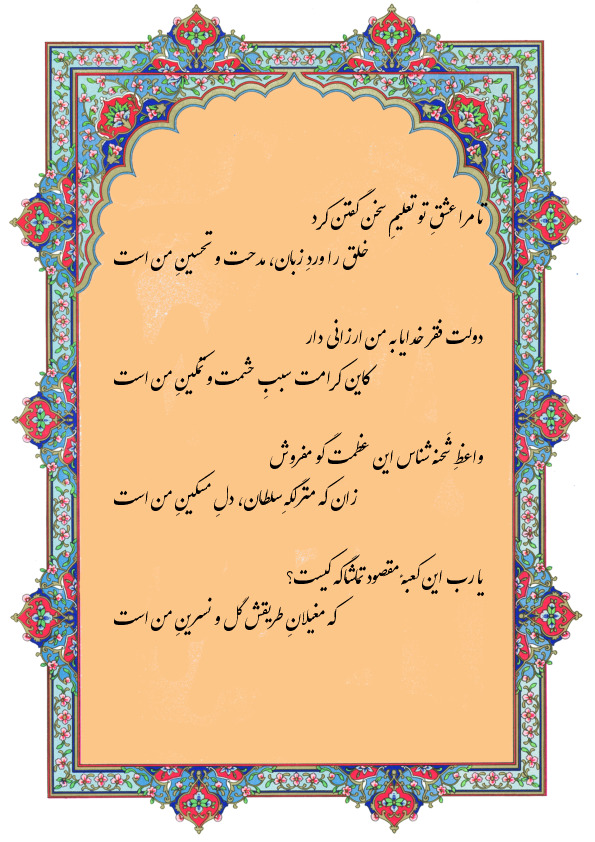 تا مرا عشقِ تو تعلیمِ سخن گفتن کرد
خلق را وردِ زبان، مدحت و تحسینِ من است
دولت فقر خدایا به من ارزانی دار
کاین کرامت سببِ حشمت و تمکینِ من است
واعظِ شَحنه شناس این عظمت گو مفروش
زان که منزلگهِ سلطان، دلِ مسکینِ من است
یا رب این کعبهٔ مقصود تماشاگه کیست؟
که مغیلانِ طریقش گل و نسرینِ من است